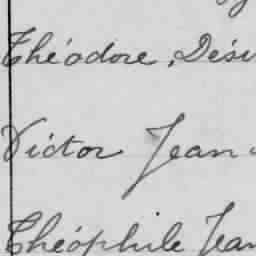 Théodore, Dési
Victor Jean
Théophile Jean